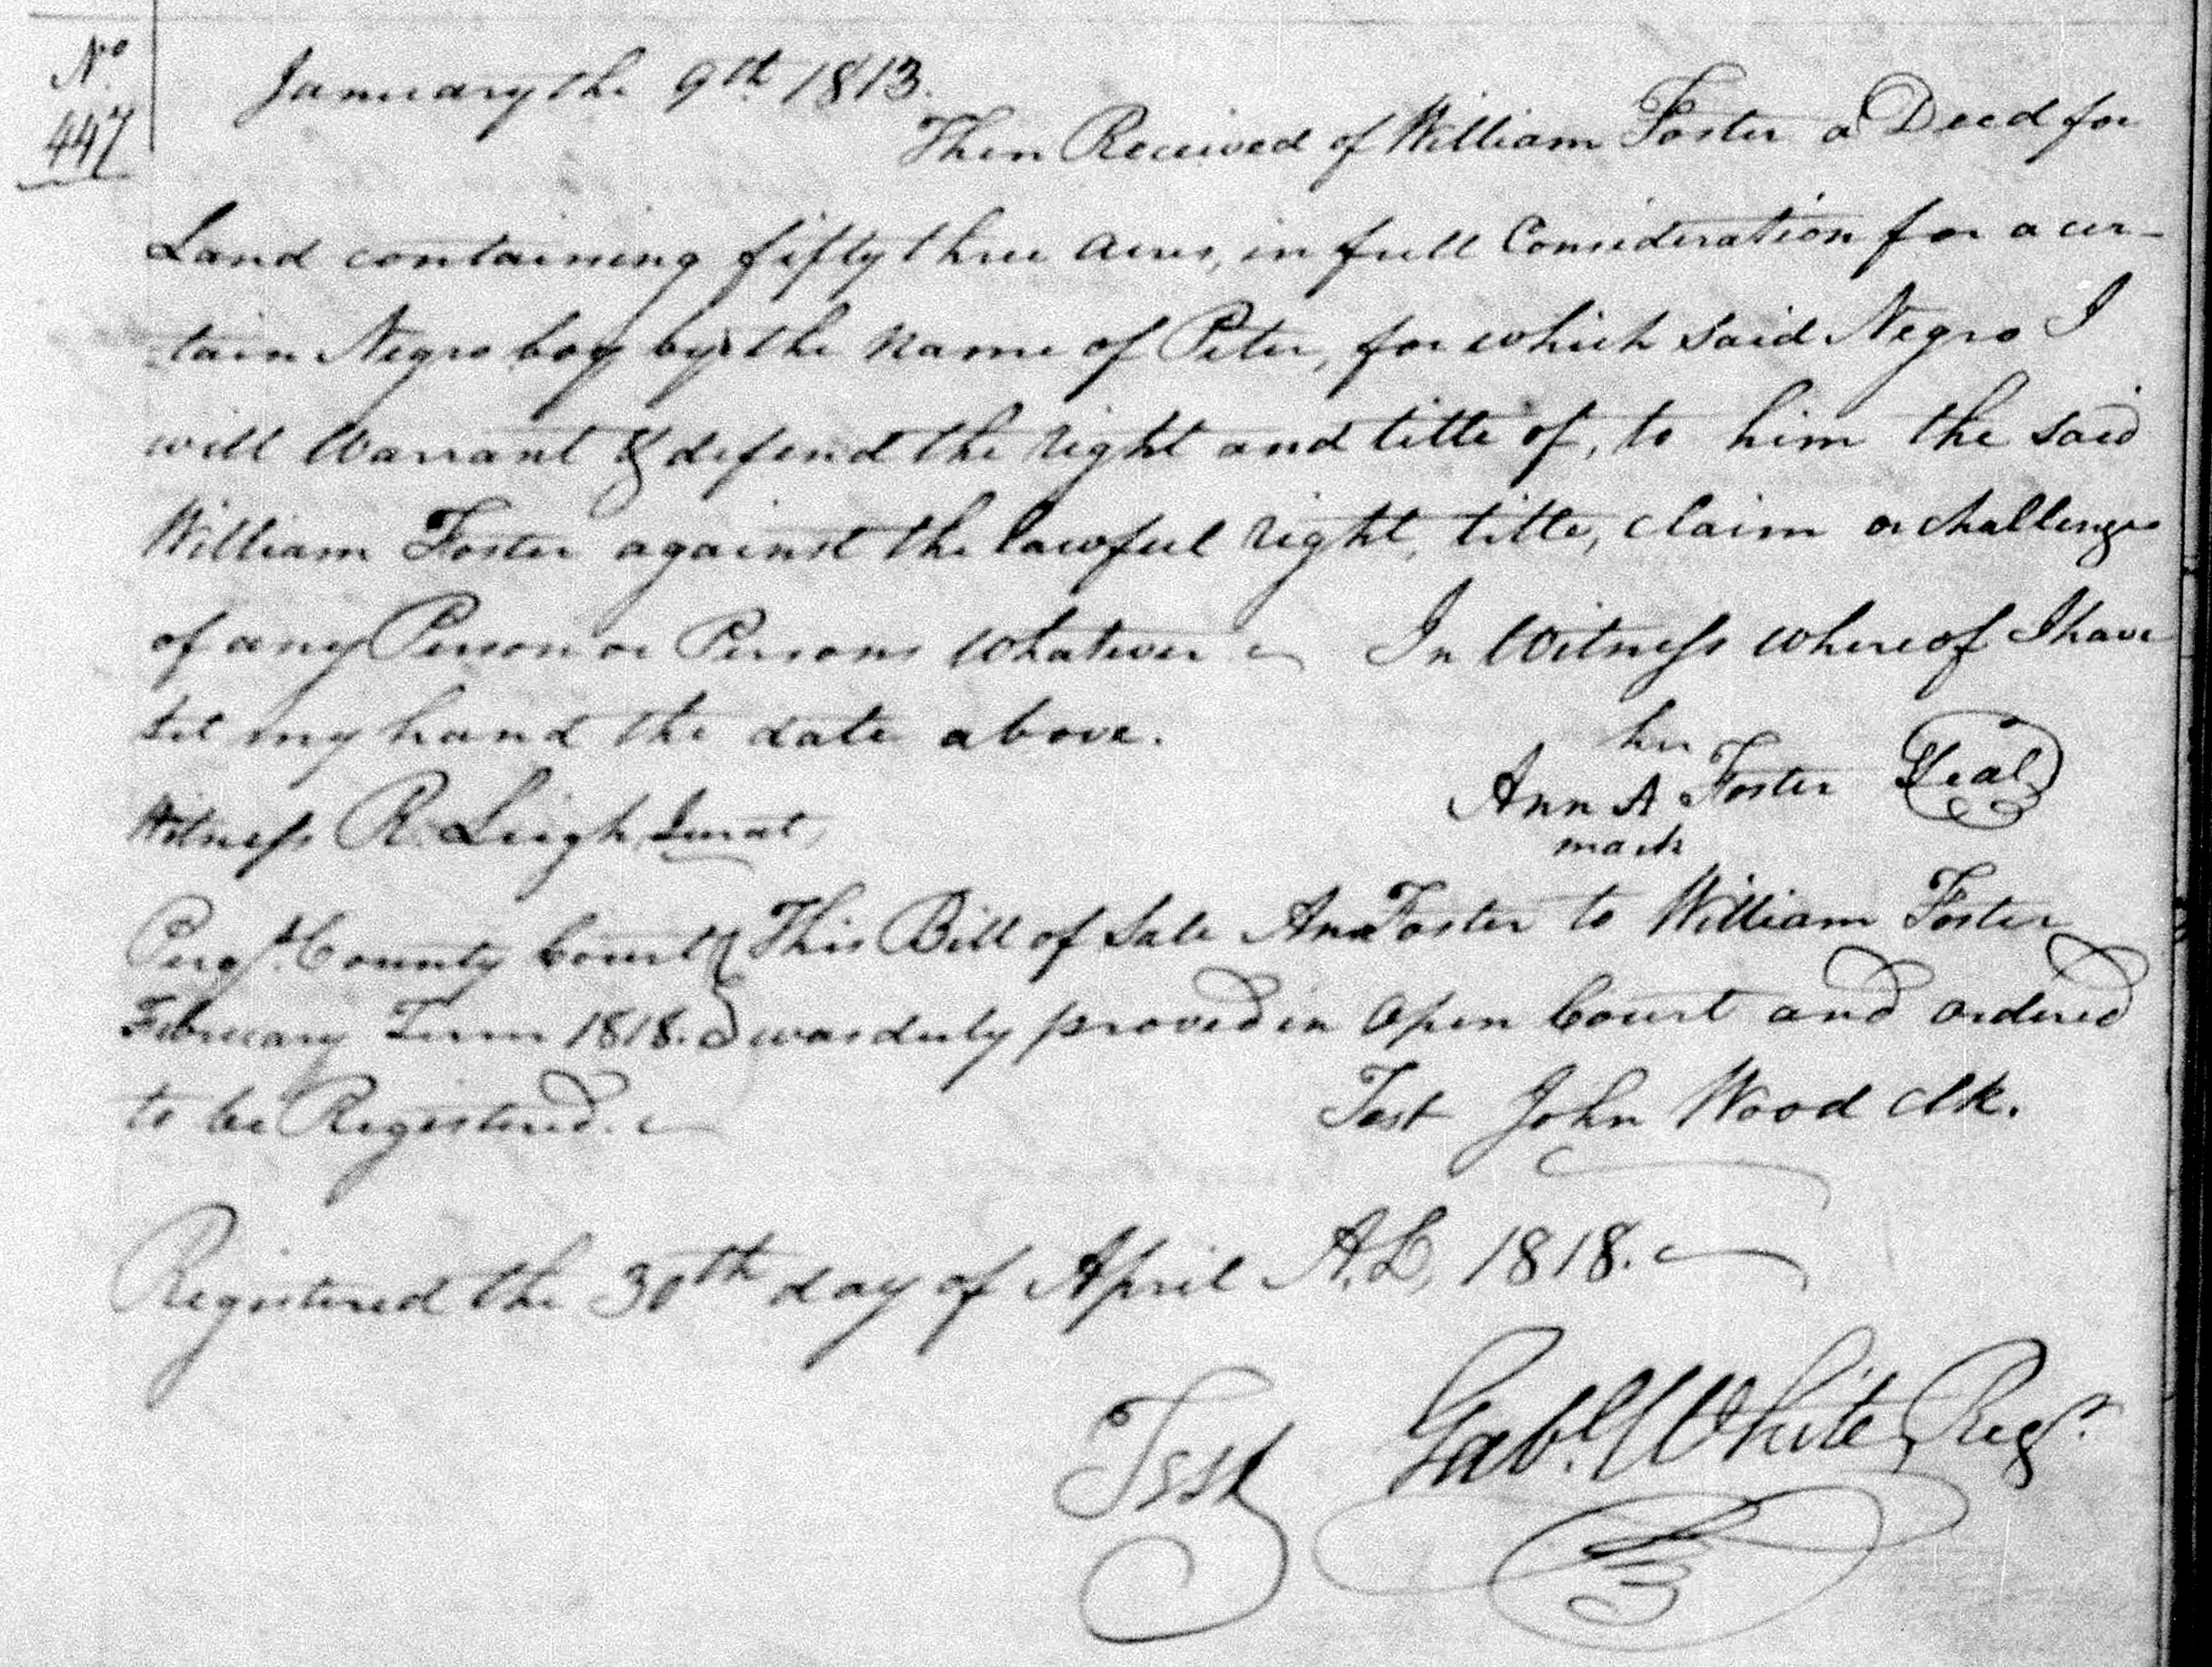 No
447
January the 9th 1813.
Then Received of William Foster a Deed for
Land containing fifty three acres, in full Consideration for a cer-
tain Negro boy by the name of Peter, for which said Negro I
will Warrant & defend the right and title of, to him the said
William Foster against the lawful right, title, claim or challenge
of any Person or Persons Whatever In Witness whereof I have
set my hand the date above.
her
Ann A Foster Seal
mark
Witness R. Leigh, Jurat,
Perqs. County Court This Bill of Sale Ann Foster to William Foster
February Term 1818. was duly proved in Open Court and ordered
to be Registered.
Test John Wood Clk.
Registered the 30th day of April A.D. 1818.
Test Gabl. White Regr.